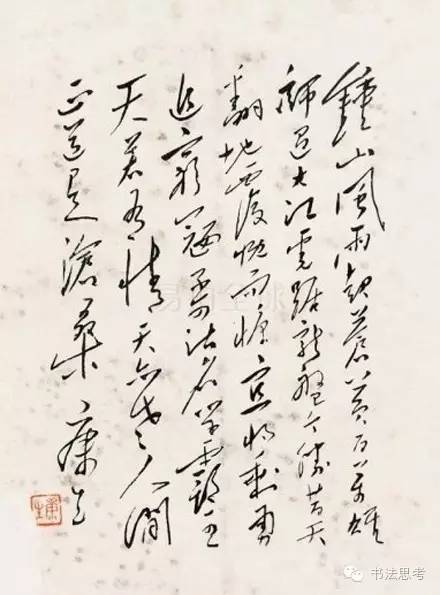 鍾山風雨起蒼黃百萬雄
師過大江虎踞龍盤今勝昔天
翻地覆慨而慷宜將剩勇
追窮寇不可沽名學霸王
天若有情天亦老人間
正道是滄桑 康生
康生
书法思考